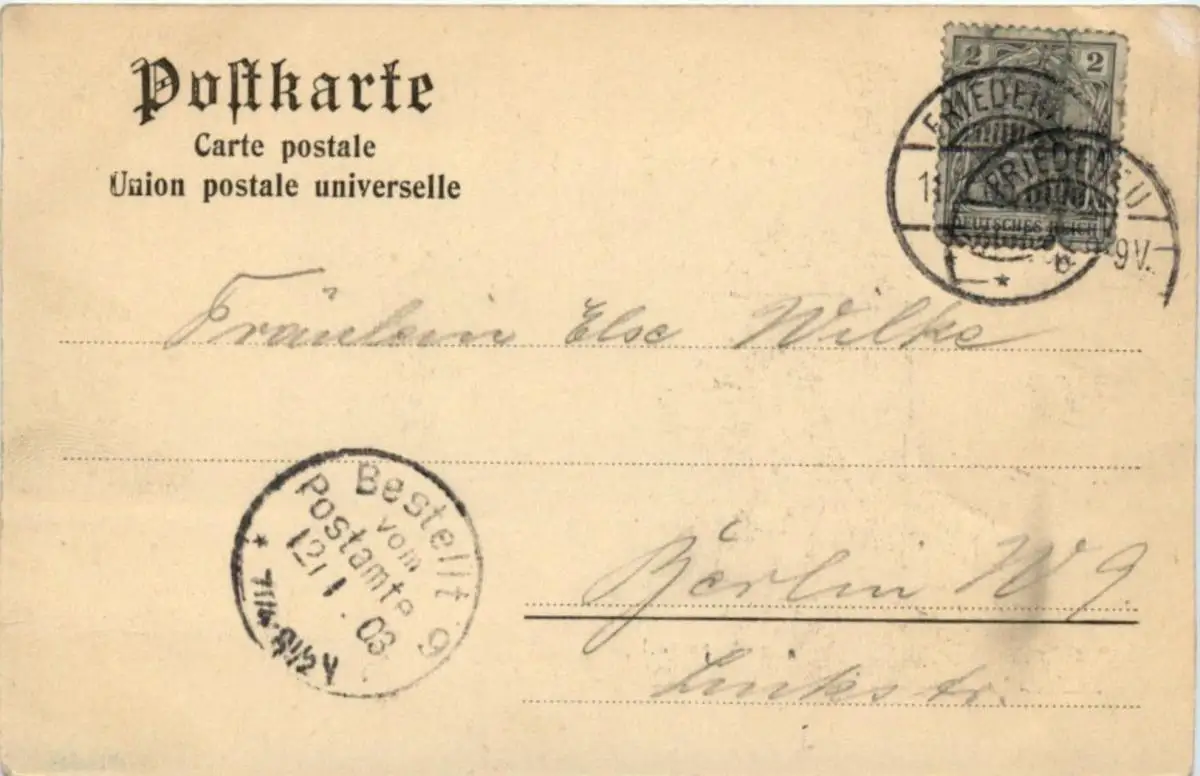 Postkarte
Carte postale
Union postale universelle
2 2
DEUTSCHES REICH
FRIEDENAU
8-9V.
Fräulein Else Wilke
Bestellt
vom
Postamte 9
12/1.03
7 1/4-8 1/2 V
Berlin W 9.
Linkstr.